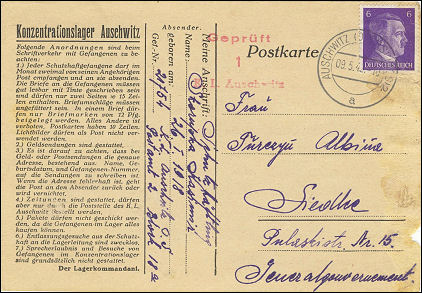 Konzentrationslager Auschwitz
Folgende Anordnungen sind beim
Schriftverkehr mit Gefangenen zu be-
achten:
1.) Jeder Schutzhaftgefangene darf im
Monat zweimal von seinen Angehörigen
Post empfangen und an sie absenden.
Die Briefe an die Gefangenen müssen
gut lesbar mit Tinte geschrieben sein
und dürfen nur zwei Seite zu 15 Zeilen
enthalten. Briefumschläge müssen
ungefüttert sein. In einem Briefe dür-
fen nur Briefmarken von 12 Pfg.
beigelegt werden. Alles Andere ist
verboten. Postkarten haben 10 Zeilen.
Lichtbilder dürfen als Post nicht ver-
wendet werden.
2.) Geldsendungen sind gestattet.
3.) Es ist darauf zu achten, dass bei
Geld- oder Postsendungen die genaue
Adresse, bestehend aus Name, Ge-
burtsdatum, und Gefangenen-Nummer,
auf die Sendungen zu schreiben ist.
Wenn die Adresse fehlerhaft ist, geht
die Post an den Absender zurück oder
wird vernichtet.
4.) Zeitungen sind gestattet, dürfen
aber nur durch die Poststelle des K.L.
Auschwitz bestellt werden.
5.) Pakete dürfen nicht geschickt wer-
den, da die Gefangenen im Lager alles
kaufen können.
6.) Entlassungsgesuche aus der Schutz-
haft an die Lagerleitung sind zwecklos.
7.) Sprecherlaubnis und Besuche von
Gefangenen im Konzentrationslager
sind grundsätzlich nicht gestattet.
Der Lagerkommandant.
Absender:
Meine Anschrift: Schutzhäftling
Name:
geboren am:
Gef.-Nr.
Geprüft
1
K. L. Auschwitz
Postkarte
AUSCHWITZ
a
6 6
DEUTSCHES REICH
Frau
Albina
Siedlce
Nr. 15.
Generalgouvernement.